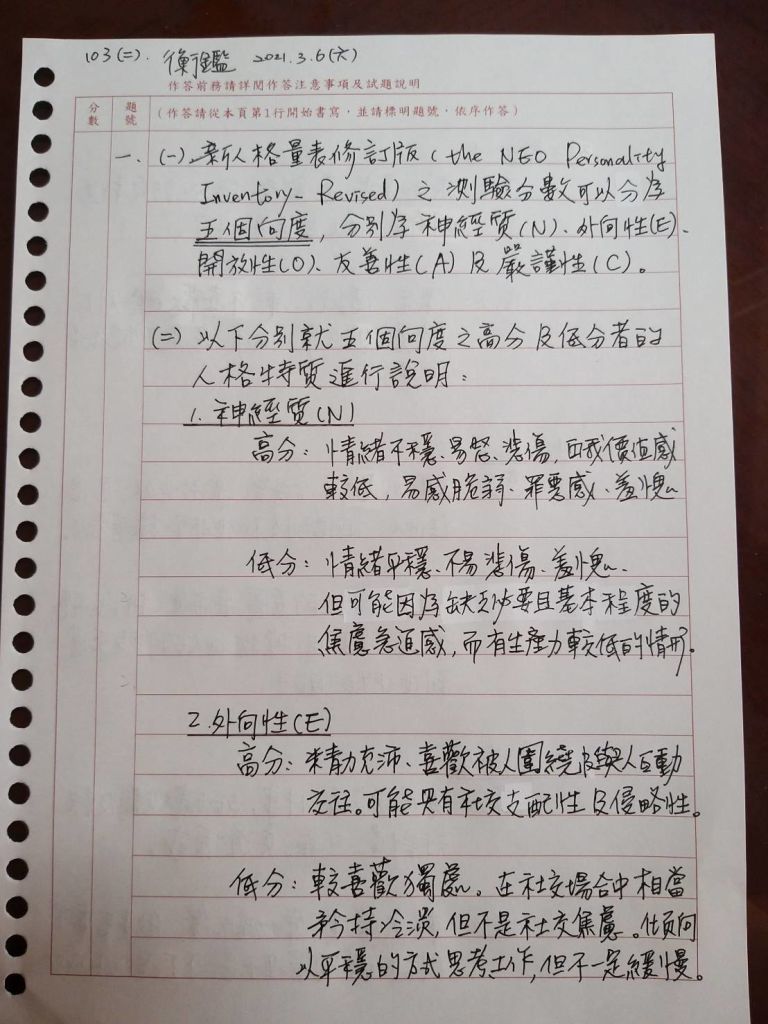 103(二). 衡鑑 2021.3.6(六)
作答前務請詳閱作答注意事項及試題說明
分數 題號 (作答請從本頁第1行開始書寫,並請標明題號,依序作答)
一、(一)、新人格量表修訂版 (the NEO Personality
Inventory-Revised) 之測驗分數可以分為
五個向度,分別為神經質(N)、外向性(E)、
開放性(O)、友善性(A)及嚴謹性(C)。
(二) 以下分別就五個向度之高分及低分者的
人格特質進行說明:
1. 神經質(N)
高分:情緒不穩、易怒、悲傷,自我價值感
較低,易感脆弱、罪惡感、羞愧。
低分:情緒平穩、不易悲傷、羞愧。
但可能因為缺乏必要且基本程度的
焦慮急迫感,而有生產力較低的情形。
2. 外向性(E)
高分:精力充沛、喜歡被人圍繞及與人互動
交往。可能具有社交支配性及侵略性。
低分:較喜歡獨處。在社交場合中相當
矜持冷淡,但不是社交焦慮。傾向
以平穩的方式思考工作,但不一定緩慢。